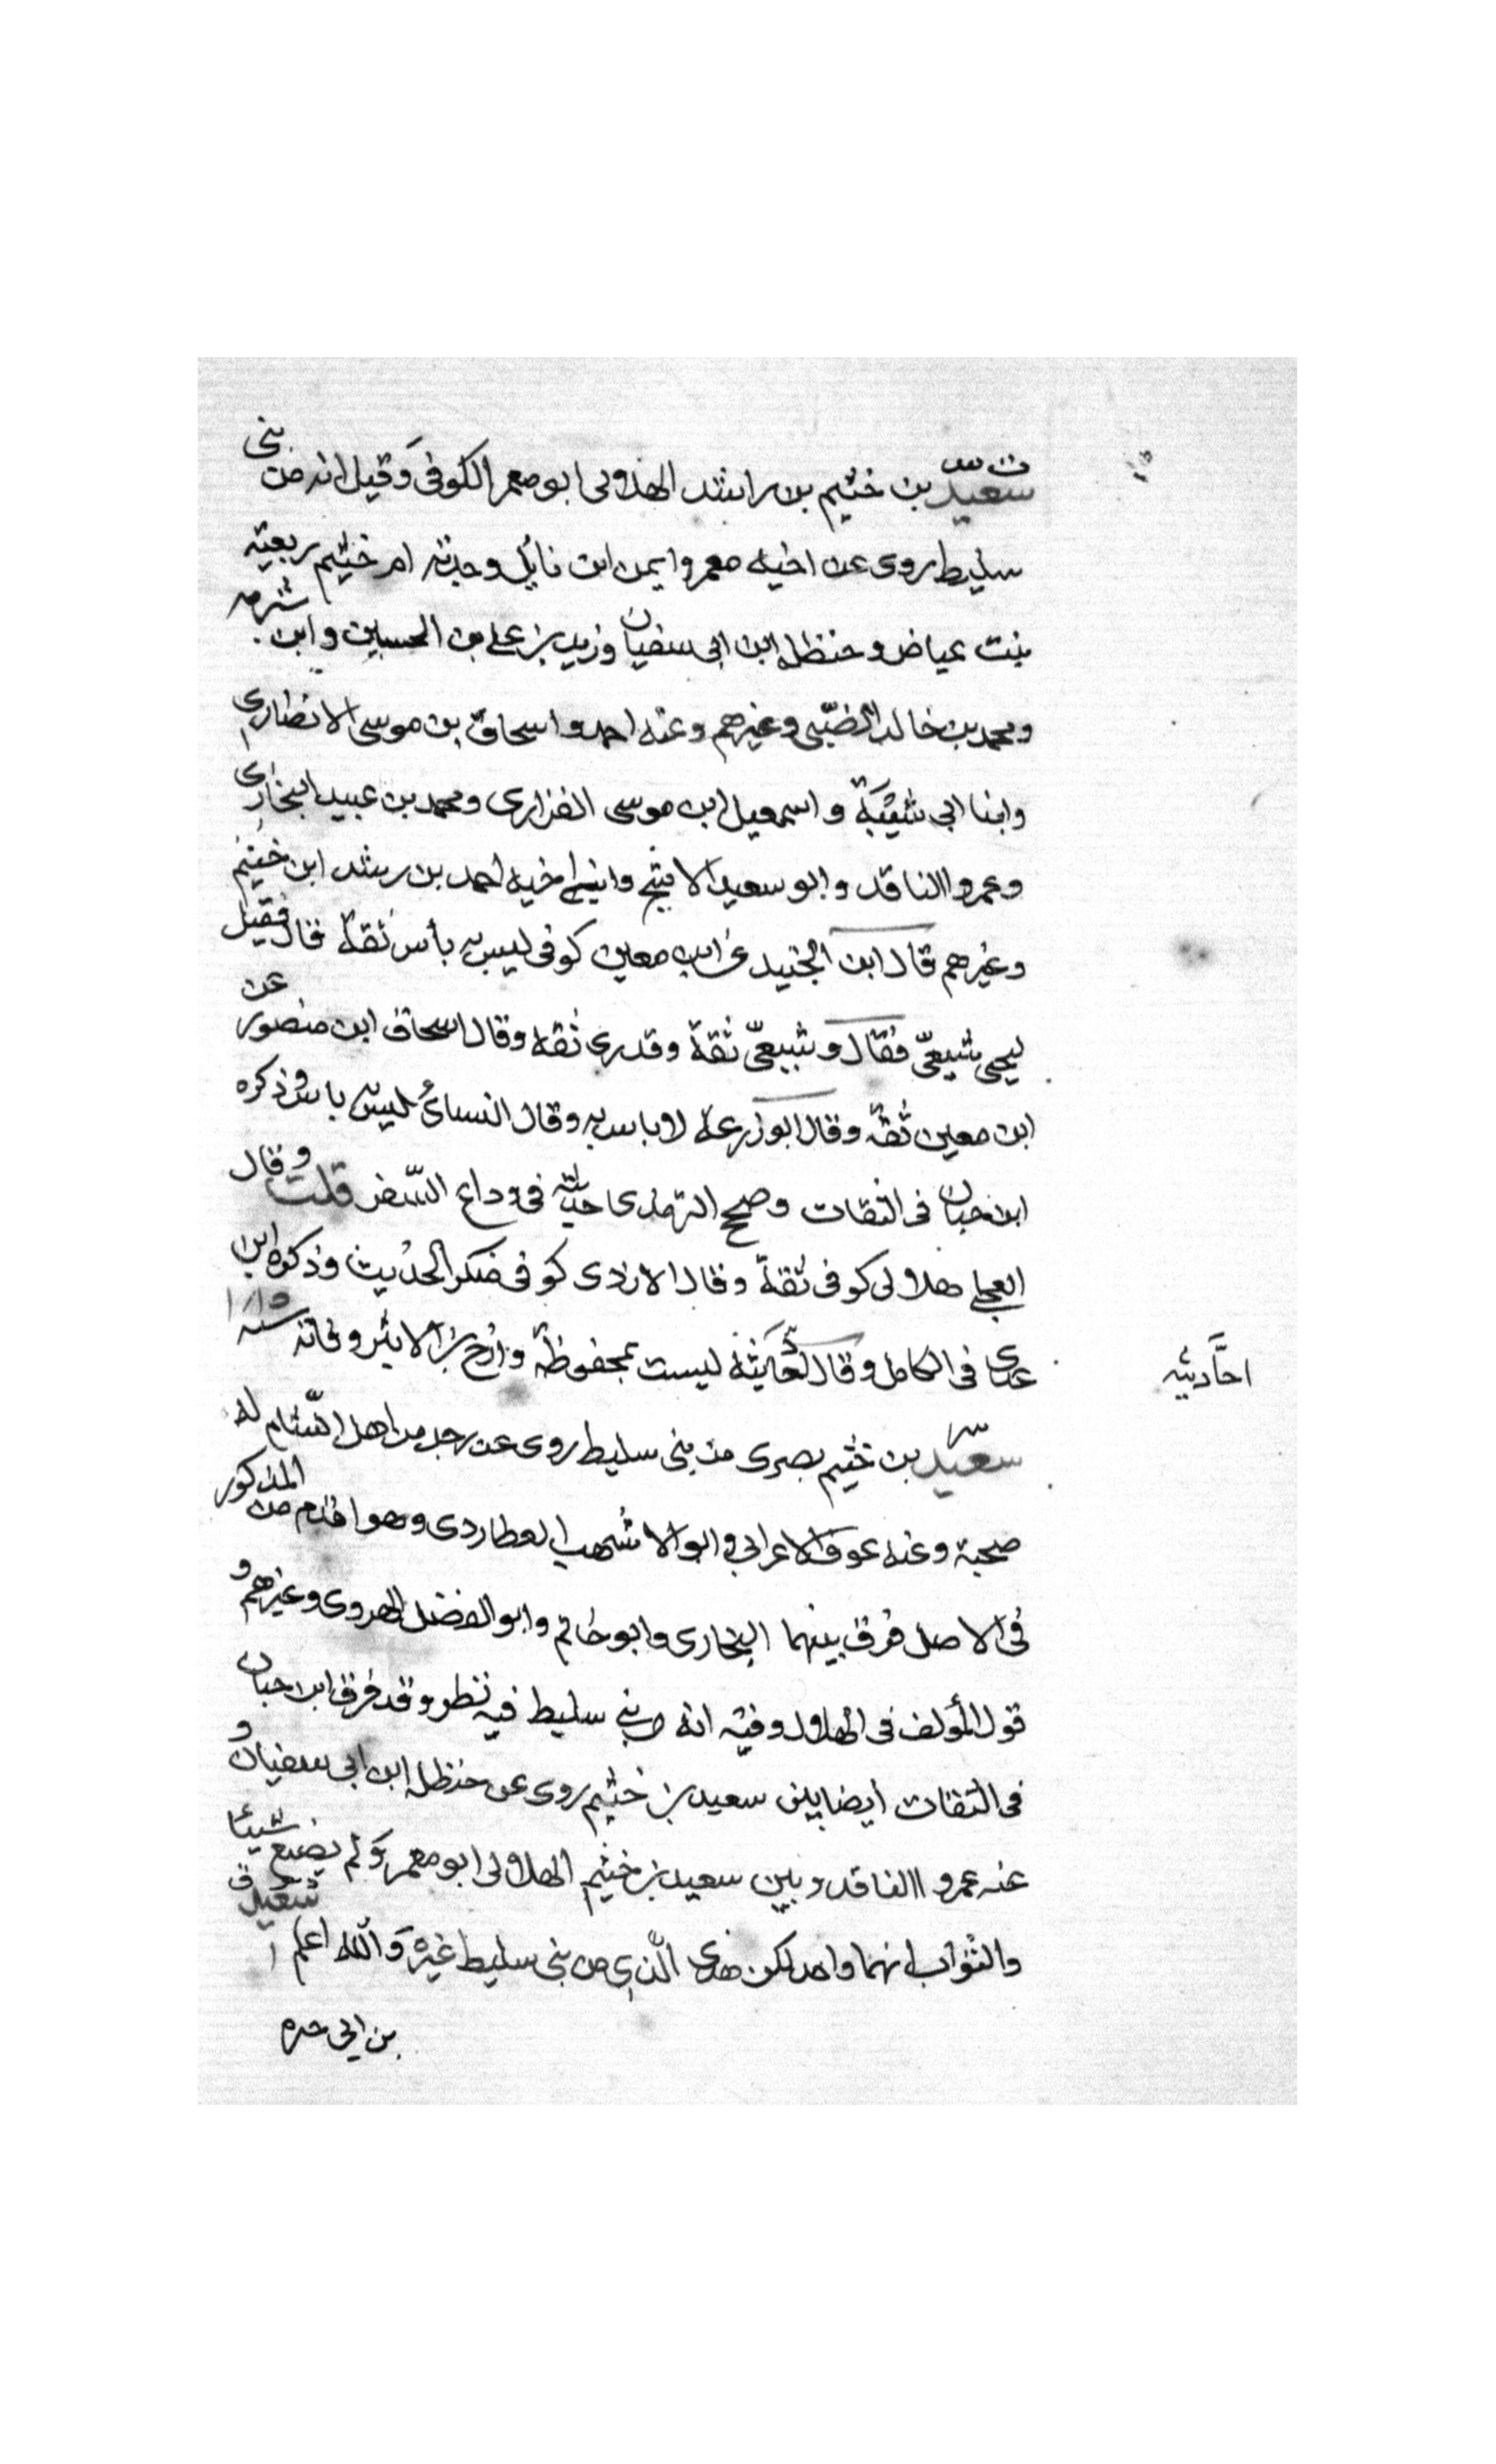 ت س
سعيد بن خثيم بن راشد الهلالى ابو معمر الكوفى وقيل انه من بنى
سليط روى عن اخيه معمر وايمن ابن نابل وجدته ام خثيم ربعية
بنت عياض وحنظلة ابن ابى سفيان وزيد بن على بن الحسين وابن شبرمه
ومحمد بن خالد الضبى وغيرهم وعنه احمد واسحاق بن موسى الانصارى
وابنا ابى شيبة واسمعيل ابن موسى الفزارى ومحمد بن عبيد البخارى
وعمرو الناقد وابو سعيد الاشج وابن اخيه احمد بن رشد ابن خثيم
وغيرهم قال ابن الجنيد عن ابن معين كوفى ليس به بأس ثقة قال فقيل
ليحيى شيعىّ فقال وشيعىّ ثقة وقدرى ثقه وقال اسحاق ابن منصور عن
ابن معين ثقة وقال ابو زرعة لا باس به وقال النسائى ليس به باس وذكره
ابن حبان فى الثقات وصحح الترمذى حديثه فى وداع السّفر قلت وقال
العجلى هلالى كوفى ثقة وقال الازدى كوفى منكر الحديث وذكره ابن
عدى فى الكامل وقال احاديثه ليست بمحفوظة وارخ بن الاثير وفاته سنه
احاديثه
سعيد بن خثيم بصرى من بنى سليط روى عن رجل من اهل الشّام له
صحبة وعنه عوف الاعرابى وابو الاشهب العطاردى وهو اقدم من المذكور
فى الاصل فرق بينهما البخارى وابو حاتم وابو الفضل الهروى وغيرهم و
قول المؤلف فى الهلال وفيه انه من بنى سليط فيه نظر وقد فرق ابن حبان
فى الثقات ايضا بين سعيد بن خثيم روى عن حنظلة ابن ابى سفيان و
عنه عمرو الناقد وبين سعيد بن خثيم الهلالى ابو معمر ولم يصنع شيئا
والثواب انهما واحد لكن هذا الّذى من بنى سليط غيره والله اعلم سعيد
بن ابى حره